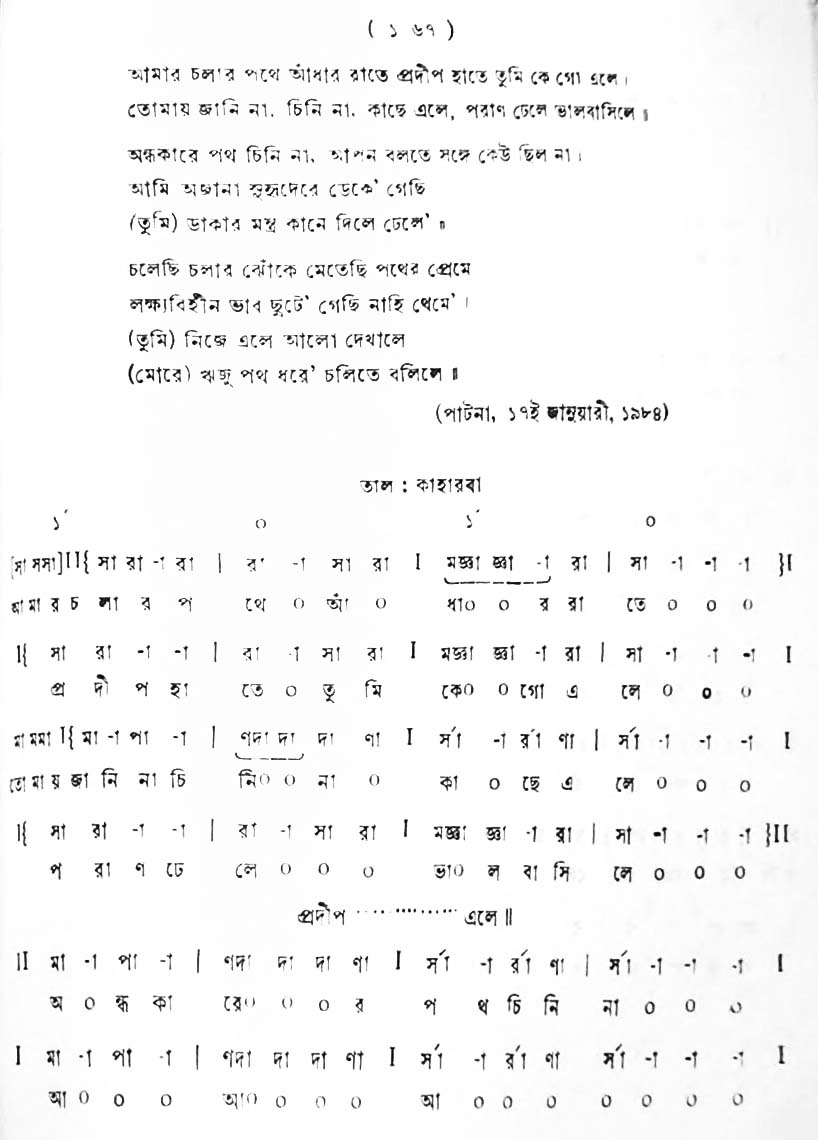 ( ১ ৬৭ )
আমার চলার পথে আঁধার রাতে প্রদীপ হাতে তুমি কে গো এলে।
তোমায় জানি না, চিনি না, কাছে এলে, পরাণ ঢেলে ভালবাসিলে॥
অন্ধকারে পথ চিনি না, আপন বলতে সঙ্গে কেউ ছিল না।
আমি অজানা সুহৃদেরে ডেকে' গেছি
(তুমি) ডাকার মন্ত্র কানে দিলে ঢেলে'॥
চলেছি চলার ঝোঁকে মেতেছি পথের প্রেমে
লক্ষ্যবিহীন ভাব ছুটে' গেছি নাহি থেমে'।
(তুমি) নিজে এলে আলো দেখালে
(মোরে) ঋজু পথ ধরে' চলিতে বলিলে॥
(পাটনা, ১৭ই জানুয়ারী, ১৯৮৪)
তাল : কাহারবা
১´ ০ ১´ ০
[সা সসা]II{ সা রা -া রা | রা -া সা রা I মজ্ঞা জ্ঞা -া রা | সা -া -া -া }I
আ মা র চ লা র প থে ০ আঁ ০ ধা০ ০ র রা তে ০ ০ ০
I{ সা রা -া -া | রা -া সা রা I মজ্ঞা জ্ঞা -া রা | সা -া -া -া I
প্র দী প হা তে ০ তু মি কে০ ০ গো এ লে ০ ০ ০
মা মমা I{ মা -া পা -া | ণদা দা দা ণা I র্সা -া র্রা ণা | র্সা -া -া -া I
তো মা য় জা নি না চি নি০ ০ না ০ কা ০ ছে এ লে ০ ০ ০
I{ সা রা -া -া | রা -া সা রা I মজ্ঞা জ্ঞা -া রা | সা -া -া -া }II
প রা ণ ঢে লে ০ ০ ০ ভা০ ল বা সি লে ০ ০ ০
প্রদীপ ··············· এলে॥
II মা -া পা -া | ণদা দা দা ণা I র্সা -া র্রা ণা | র্সা -া -া -া I
অ ০ ন্ধ কা রে০ ০ ০ র প থ চি নি না ০ ০ ০
I মা -া পা -া | ণদা দা দা ণা I র্সা -া র্রা ণা র্সা -া -া -া I
আ ০ ০ ০ আ০ ০ ০ ০ আ ০ ০ ০ ০ ০ ০ ০